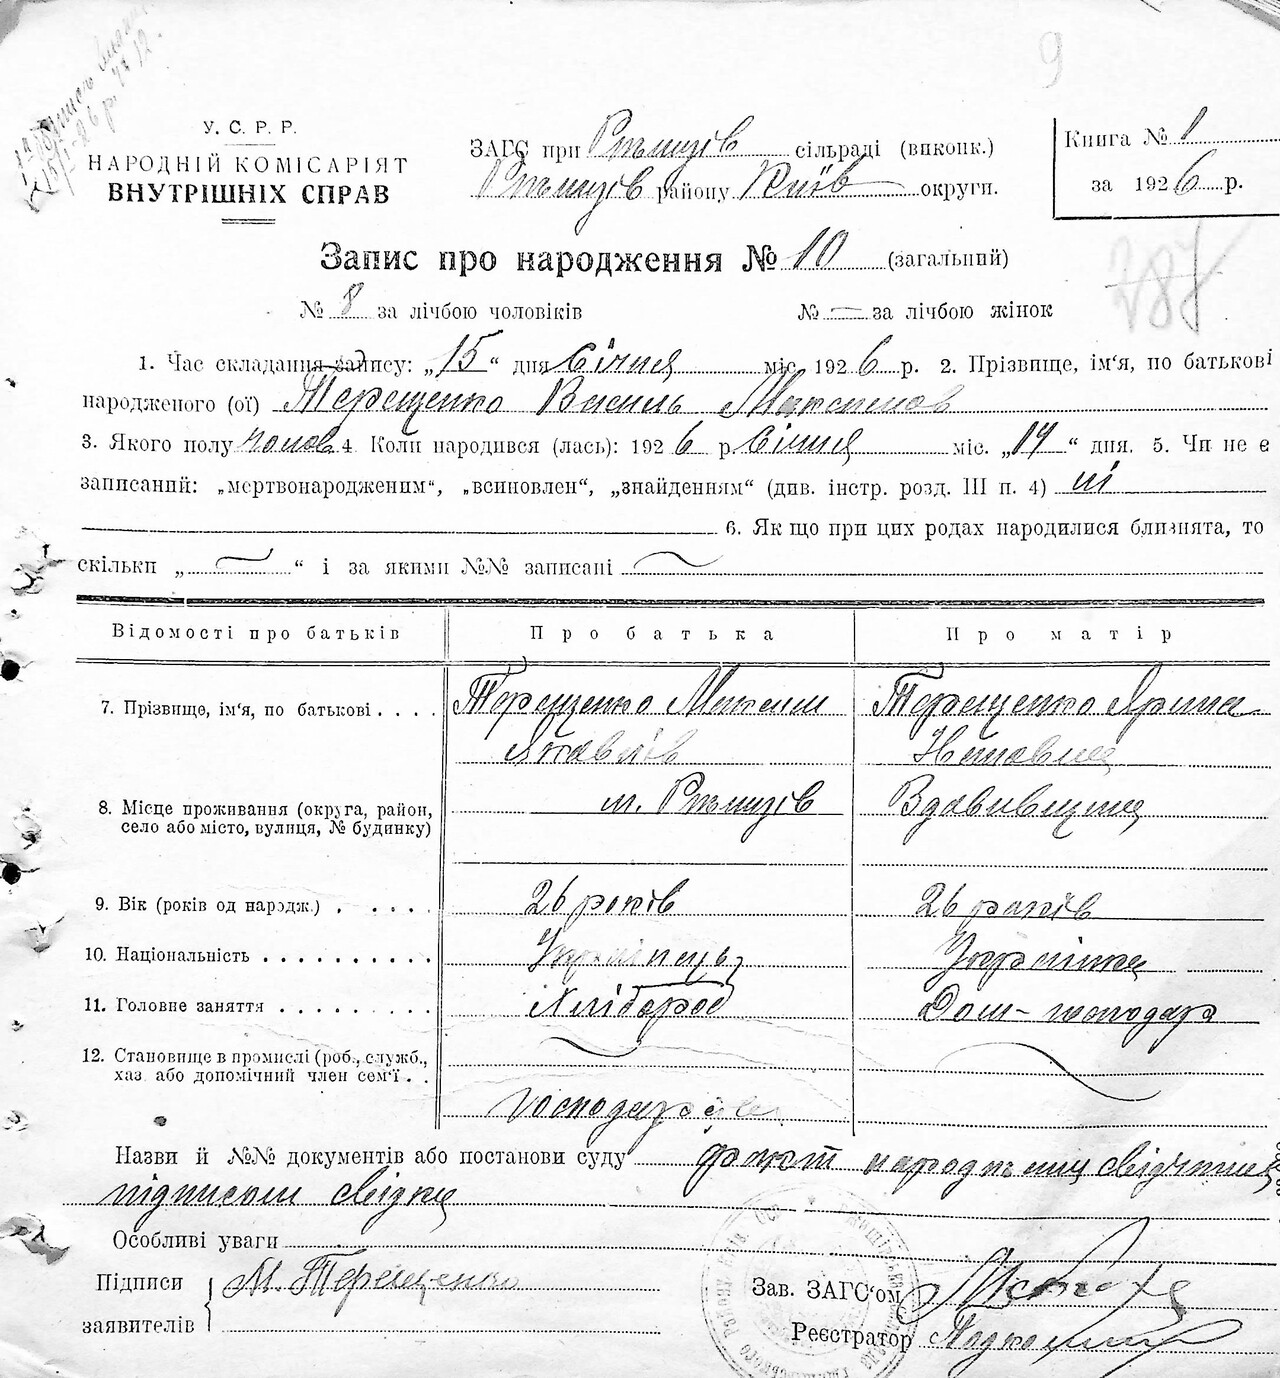 У. С. Р. Р.
НАРОДНІЙ КОМІСАРІЯТ
ВНУТРІШНІХ СПРАВ
ЗАГС при Ржищів сільраді (виконк.)
Ржищів району Київ округи.
Книга № 1
за 1926 р.
9
Запис про народження № 10 (загальний)
287
№ 8 за лічбою чоловіків № — за лічбою жінок
1. Час складання запису: „15“ дня Січня міс. 1926 р. 2. Прізвище, ім'я, по батькові
народженого (ої) Терещенко Василь Максимов
3. Якого полу чолов. 4. Коли народився (лась): 1926 р Січня міс. „14“ дня. 5. Чи не є
записаний: „мертвонародженим“, „всиновлен“, „знайденням“ (див. інстр. розд. III п. 4) ні
6. Як що при цих родах народилися близнята, то
скільки „ — “ і за якими №№ записані —
Відомості про батьків Про батька Про матір
7. Прізвище, ім'я, по батькові . . . . Терещенко Максим Терещенко Ярина
Яковлів
8. Місце проживання (округа, район, м. Ржищів
село або місто, вулиця, № будинку)
9. Вік (років од народж.) . . . . . 26 років 26 років
10. Національність . . . . . . . . . . Українець Українка
11. Головне заняття . . . . . . . . . Хлібороб Дом-господар
12. Становище в промислі (роб., служб.,
хаз або допомічний член сем'ї . .
Назви й №№ документів або постанови суду факт народження
підписом свідка
Особливі уваги
Підписи М. Терещенко
заявителів
Зав. ЗАГС'ом
Реєстратор